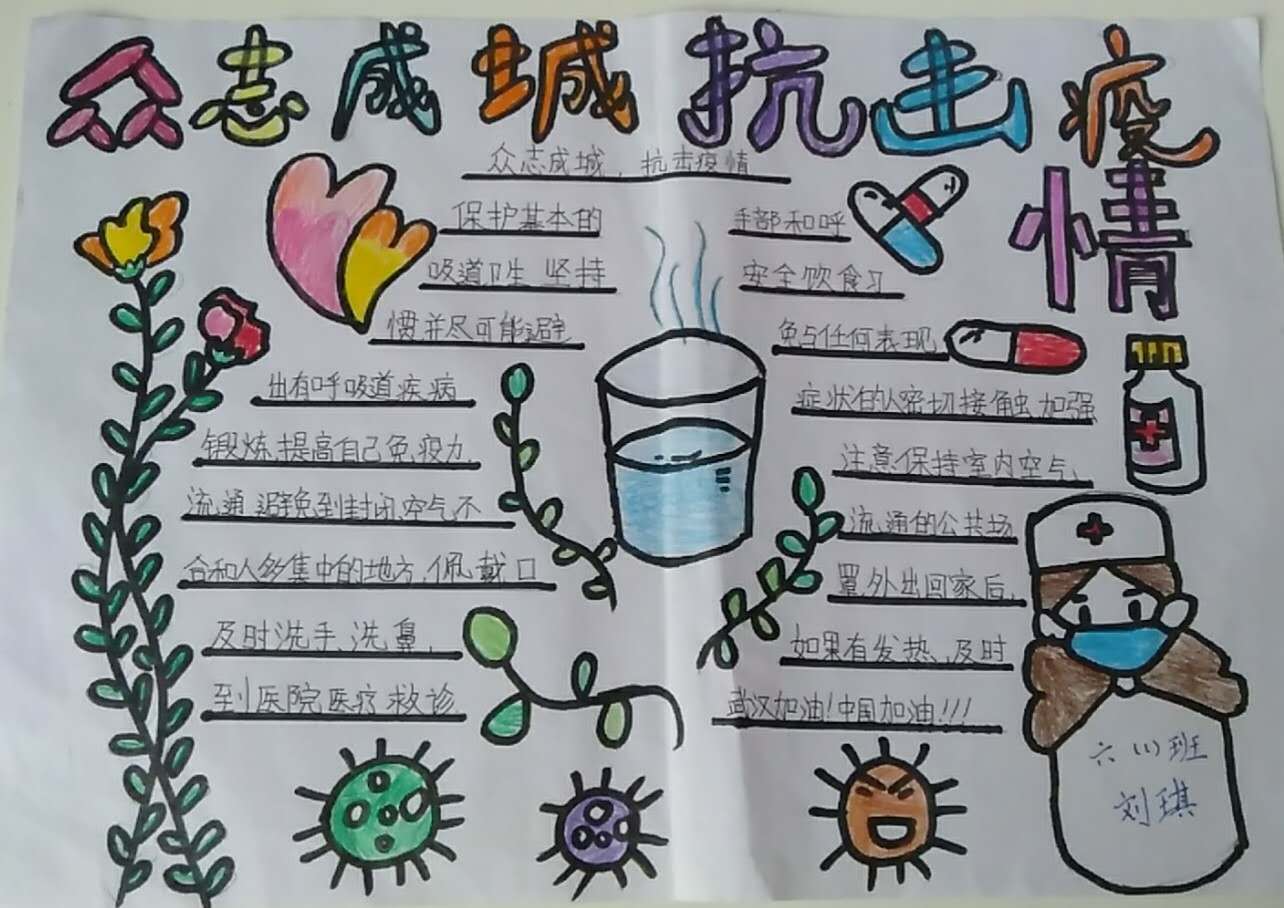 众志成城抗击疫情
众志成城，抗击疫情
保护基本的 手部和呼
吸道卫生 坚持 安全饮食习
惯并尽可能避 免与任何表现
出有呼吸道疾病 症状的人密切接触,加强
锻炼,提高自己免疫力, 注意保持室内空气、
流通,避免到封闭,空气不 流通的公共场
合和人多集中的地方,佩戴口 罩,外出回家后,
及时洗手、洗鼻, 如果有发热,及时
到医院医疗救诊 武汉加油!中国加油!!!
六(1)班
刘琪